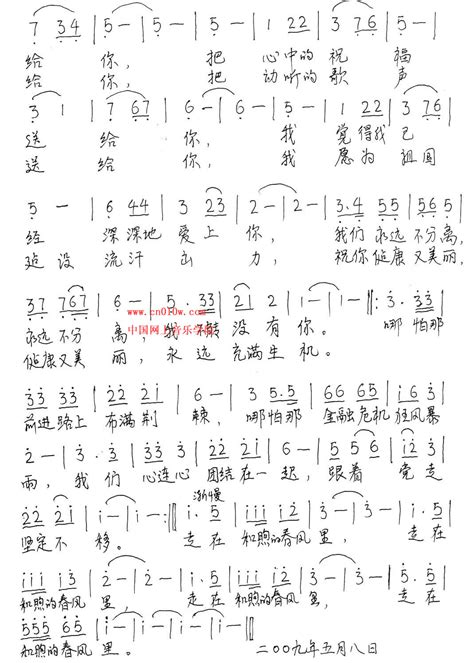 7 34 | 5 – | 5 – | 5 – | 1 22 | 3 76 | 5 – |
给 你， 把 心中的 祝 福
给 你， 把 动听的 歌 声
3 1 | 7 67 | 6 – | 6 – | 5 – | 1 22 | 3 76 |
送 给 你， 我 觉得我 已
送 给 你， 我 愿为 祖国
5 – | 2 – | 6 44 | 3 23 | 2 – | 2 – | 3.4 55 | 565 6 |
经 深深地 爱上 你， 我们 永远 不分离，
建设 流汗 出 力， 祝你 健康 又美丽，
37 767 | 6 – | 5. 33 | 21 2 | 1 – | 1 – :|: 3.3 33 |
永远 不分 离，我 没有 你。 哪怕那
健康 又美 丽，永远 充满 生 机。
www.cn010w.com
中国网上音乐学院
33 33 | 22 21 | 6 – | 3 5.5 | 66 65 | i 6 3 |
前进 路上 布满 荆 棘，哪怕那 金融 危机 狂风暴
2 – | 3 33 | 22 | 2 3 | i – | 3 5 |
雨，我们 心连心 团结在一 起，跟着 党 走
渐慢
22 2i | i – | i – :|| i. 5 | iii i3 | 3 – | 3 – | i. 5 |
坚定 不 移。 走在 和煦的春风 里， 走在
iii i3 | 2 – | 2 – | i. 5 | iii i3 | 3 – | 3 – | 5. 5 |
和煦的春风 里， 走在 和煦的春风 里， 走在
555 65 | i – | i – | i – | i – ||
和煦的春风 里。 二〇〇九年五月八日